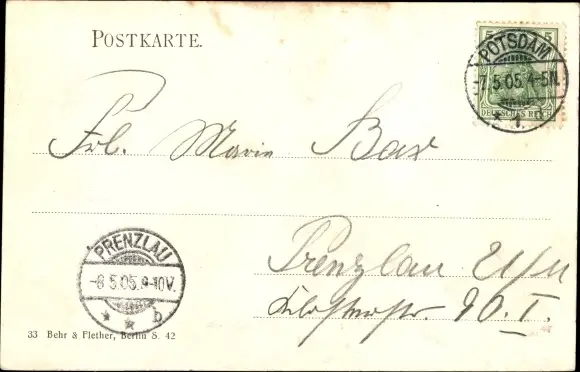 POSTKARTE.
5 5
DEUTSCHES REICH
POTSDAM
-7.5.05.4-5N.
1.
Frl. Marie Bax
PRENZLAU
-8.5.05.9-10V.
* * b
Prenzlau U/M
90. I.
33 Behr & Flether, Berlin S. 42